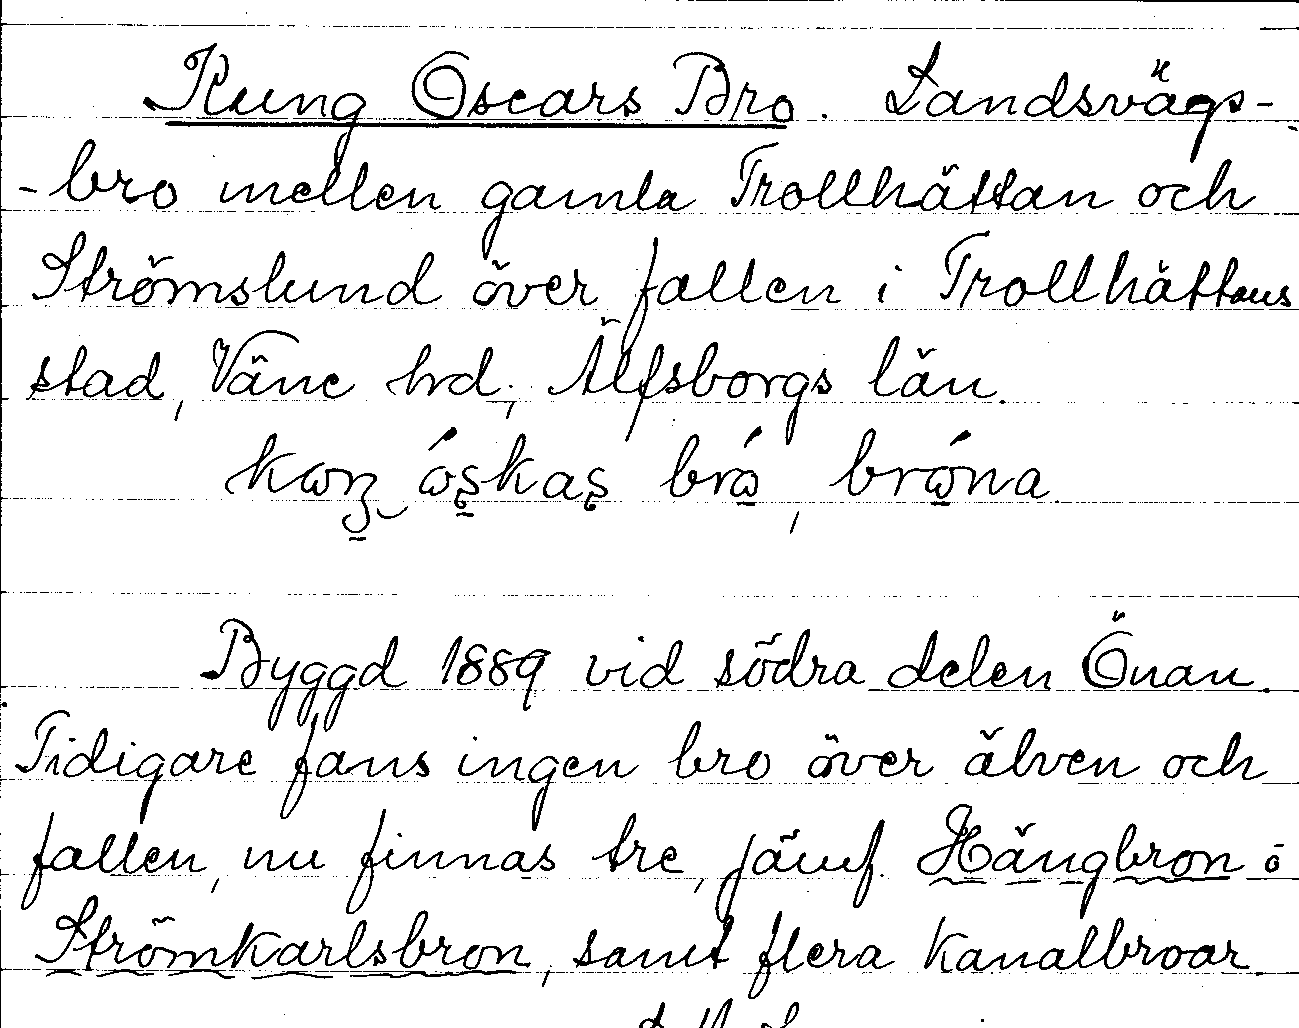 Kung Oscars Bro. Landsvägs-
-bro mellen gamla Trollhättan och
Strömslund över fallen i Trollhättans
stad, Väne hrd, Älfsborgs län.
bro̲, bro̲na
Byggd 1889 vid södra delen Önan.
Tidigare fans ingen bro över älven och
fallen, nu finnas tre, jämf. Hängbron o
Strömkarlsbron, samt flera kanalbroar